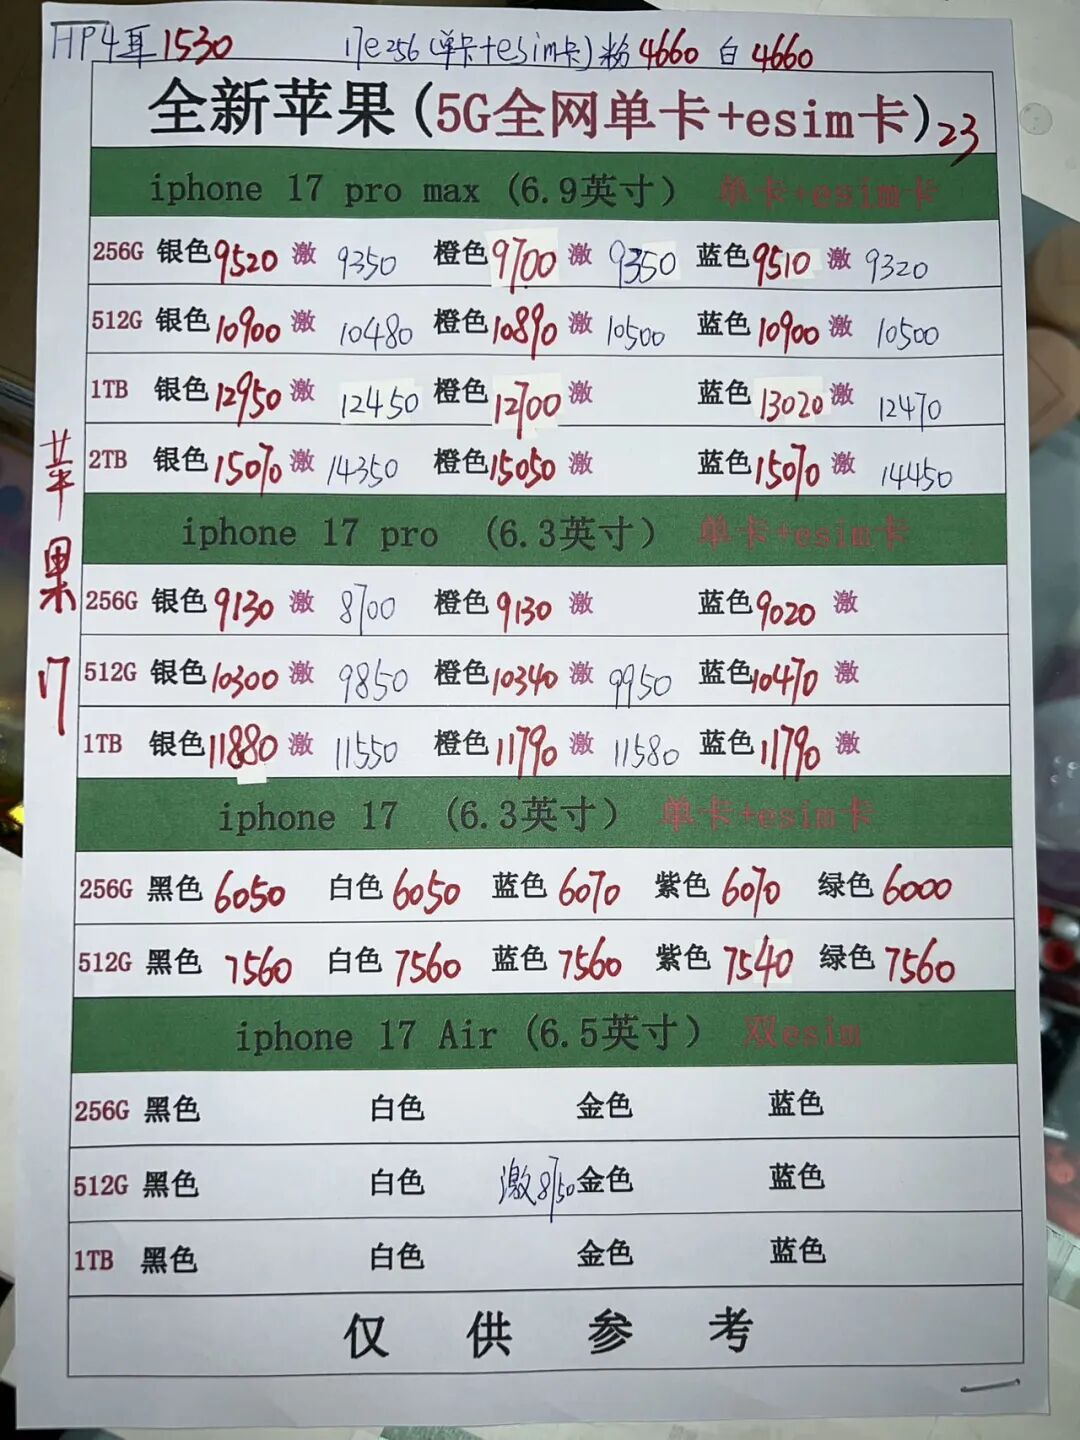 HP4耳1530 17e256(单卡+esim卡)粉4660 白4660
全新苹果(5G全网单卡+esim卡)23
iphone 17 pro max (6.9英寸) 单卡+esim卡
256G 银色9520 激 9350 橙色9700 激 9350 蓝色9510 激 9320
512G 银色10900 激 10480 橙色10890 激 10500 蓝色10900 激 10500
1TB 银色12950 激 12450 橙色12700 激 蓝色13020 激 12470
2TB 银色15070 激 14350 橙色15050 激 蓝色15070 激 14450
苹果17
iphone 17 pro (6.3英寸) 单卡+esim卡
256G 银色9130 激 8700 橙色9130 激 蓝色9020 激
512G 银色10300 激 9850 橙色10340 激 9950 蓝色10470 激
1TB 银色11880 激 11550 橙色11790 激 11580 蓝色11790 激
iphone 17 (6.3英寸) 单卡+esim卡
256G 黑色6050 白色6050 蓝色6070 紫色6070 绿色6000
512G 黑色7560 白色7560 蓝色7560 紫色7540 绿色7560
iphone 17 Air (6.5英寸) 双esim
256G 黑色 白色 金色 蓝色
512G 黑色 白色 激8750 金色 蓝色
1TB 黑色 白色 金色 蓝色
仅供参考